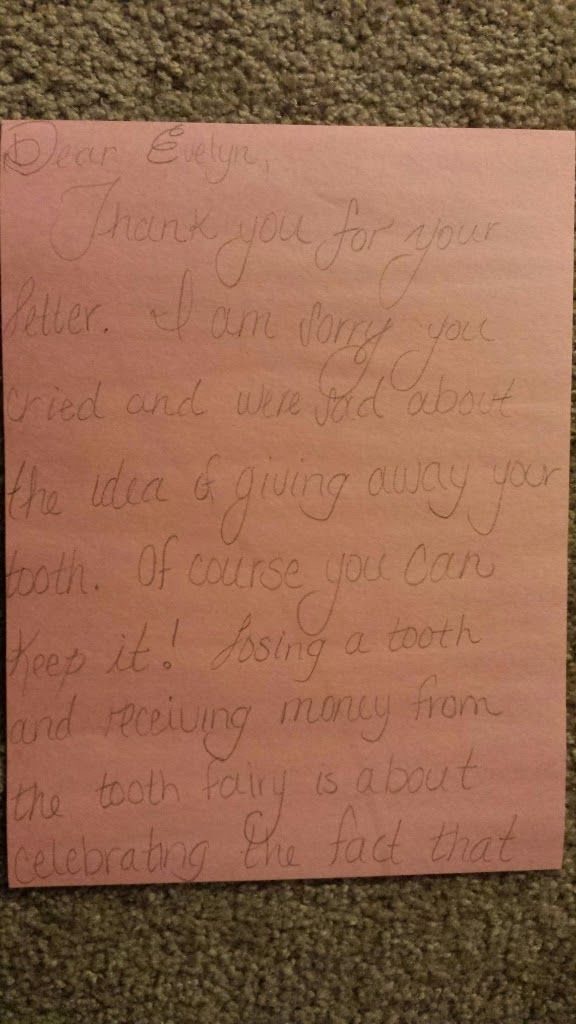 Dear Evelyn,
Thank you for your
letter. I am sorry you
cried and were sad about
the idea of giving away your
tooth. Of course you can
keep it! Losing a tooth
and receiving money from
the tooth fairy is about
celebrating the fact that